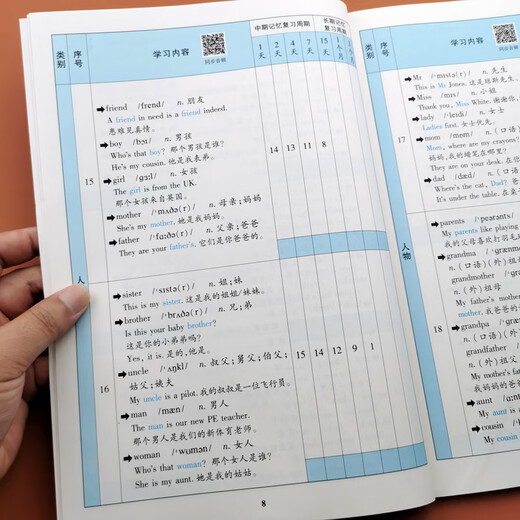 类别
序号
学习内容
同步音频
中期记忆复习周期
长期记忆复习周期
1天
2天
4天
7天
1个月
➡friend /frend/ n. 朋友
A friend in need is a friend indeed.
患难见真情。
➡boy /bɔɪ/ n. 男孩
Who's that boy? 那个男孩是谁?
He's my cousin. 他是我表弟。
15
➡girl /gɜːl/ n. 女孩
The girl is from the UK.
那个女孩来自英国。
➡mother /ˈmʌðə(r)/ n. 母亲;妈妈
She's my mother. 她是我妈妈。
➡father /ˈfɑːðə(r)/ n. 父亲;爸爸
They are your father's. 它们是你爸爸的。
14 13 11 8
人
➡sister /ˈsɪstə(r)/ n. 姐;妹
This is my sister. 这是我的姐姐/妹妹。
➡brother /ˈbrʌðə(r)/ n. 兄;弟
Is this your baby brother?
这是你的小弟弟吗?
Yes, it is. 是的,他是。
16
➡uncle /ˈʌŋkl/ n. 叔父;舅父;伯父;
姑父;姨夫
My uncle is a pilot. 我的叔叔是一位飞行员。
➡man /mæn/ n. 男人
The man is our new PE teacher.
那个男人是我们的新体育老师。
➡woman /ˈwʊmən/ n. 女人
Who's that woman? 那个女人是谁?
She is my aunt. 她是我的姑姑。
15 14 12 9 1
8
类别
序号
学习内容
➡Mr /ˈmɪstə(r)/ n. 先生
This is Mr Jones. 这是琼斯先生。
➡Miss /mɪs/ n. 小姐
Thank you, Miss White. 谢谢你,
➡lady /ˈleɪdi/ n. 女士
Ladies first. 女士优先。
17
➡mom /mɒm/ n. (口语)
Mom, where are my crayons?
妈妈,我的蜡笔在哪里?
They are on your desk. 在你
➡dad /dæd/ n. (口语)
Where's the cat, Dad? 爸
It's under the table. 在桌
人物
➡parents /ˈpeərənts/
My parents like playing
我的父母喜欢打羽毛球
➡grandma /ˈɡrænmɑː
n. (口语)(外)祖母
grandmother
n. (外)祖母
My father's mother
我爸爸的妈妈
18
➡grandpa /ˈɡræn
n. (口语)(外)祖
grandfather
n. (外)祖父
My mother's fath
我妈妈的爸爸
➡aunt /ɑːnt/ n.
My aunt is
➡cousin
My cousin